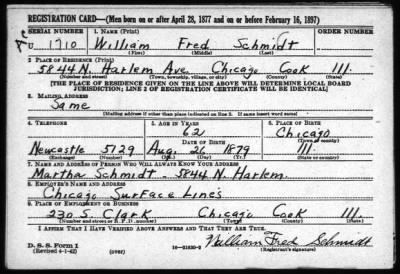 REGISTRATION CARD—(Men born on or after April 28, 1877 and on or before February 16, 1897)
SERIAL NUMBER 1. NAME (Print) ORDER NUMBER
U 1710 William Fred Schmidt
(First) (Middle) (Last)
2. PLACE OF RESIDENCE (Print)
5844 N. Harlem Ave Chicago Cook Ill.
(Number and street) (Town, township, village, or city) (County) (State)
[THE PLACE OF RESIDENCE GIVEN ON THE LINE ABOVE WILL DETERMINE LOCAL BOARD
JURISDICTION; LINE 2 OF REGISTRATION CERTIFICATE WILL BE IDENTICAL]
3. MAILING ADDRESS
Same
[Mailing address if other than place indicated on line 2. If same insert word same]
4. TELEPHONE 5. AGE IN YEARS 6. PLACE OF BIRTH
62 Chicago
DATE OF BIRTH (Town or county)
Newcastle 5129 Aug. 26 1879 Ill.
(Exchange) (Number) (Mo.) (Day) (Yr.) (State or country)
7. NAME AND ADDRESS OF PERSON WHO WILL ALWAYS KNOW YOUR ADDRESS
Martha Schmidt - 5844 N. Harlem.
8. EMPLOYER'S NAME AND ADDRESS
Chicago Surface Lines
9. PLACE OF EMPLOYMENT OR BUSINESS
230 S Clark Chicago Cook Ill.
(Number and street or R. F. D. number) (Town) (County) (State)
I AFFIRM THAT I HAVE VERIFIED ABOVE ANSWERS AND THAT THEY ARE TRUE.
D. S. S. Form 1 William Fred Schmidt
(Revised 4-1-42) (over) 16—21630-2 (Registrant's signature)